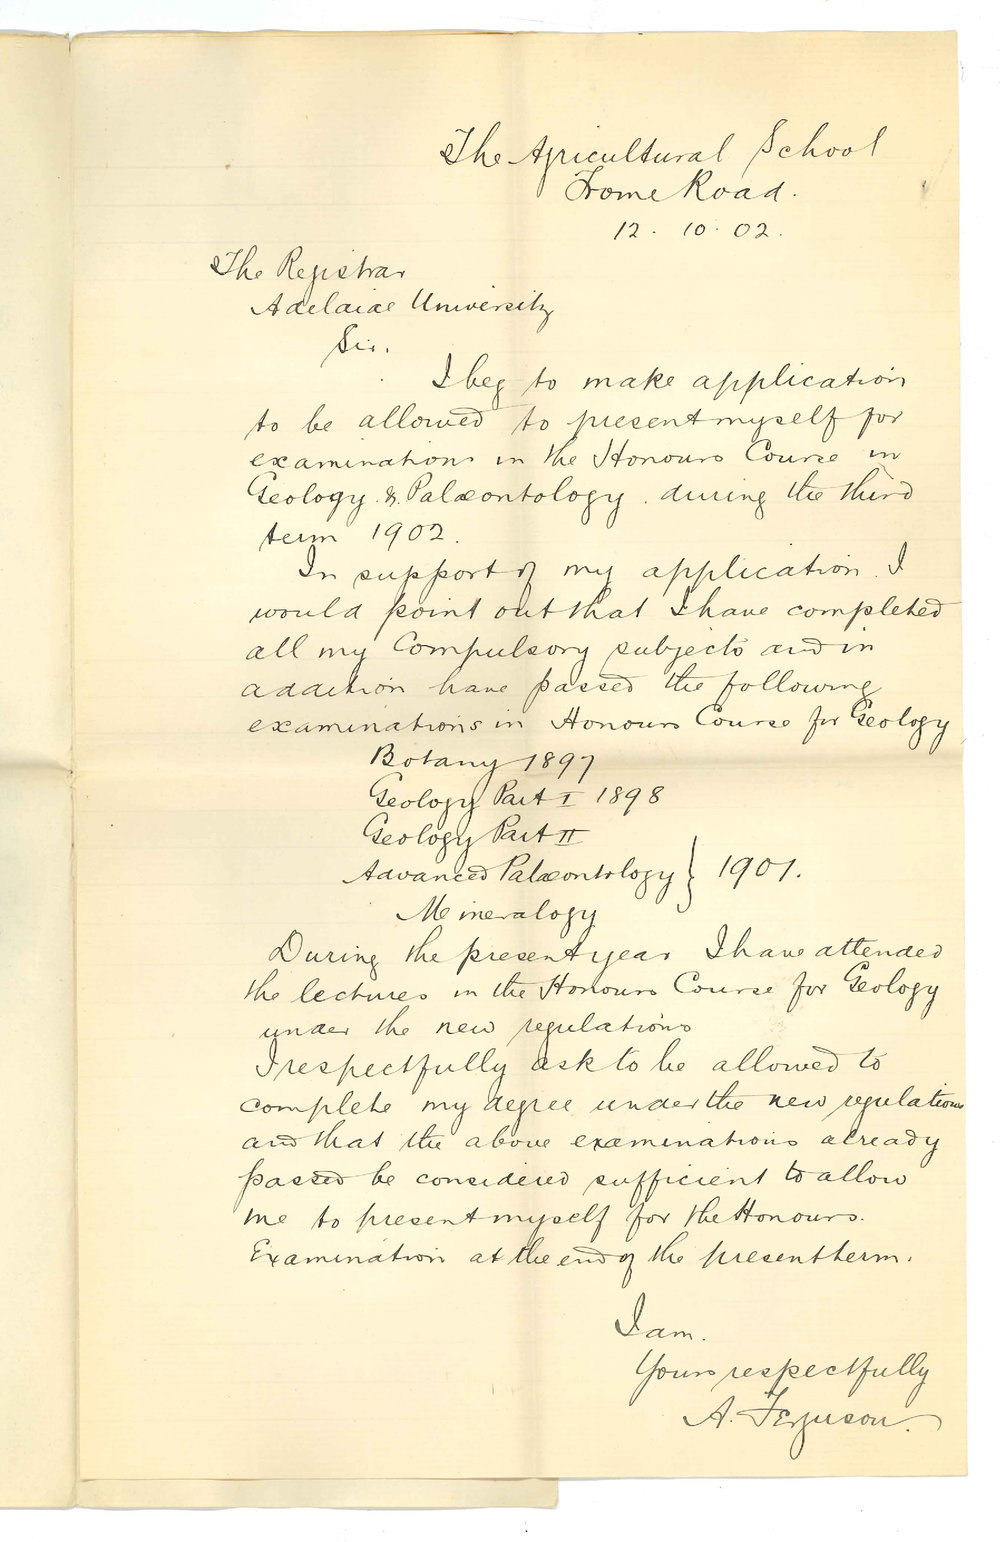 The Agricultural School
Frome Road.
12. 10. 02.
The Registrar
Adelaide University
Sir.
I beg to make application
to be allowed to present myself for
examinations in the Honours Course in
Geology & Palæontology. during the third
term 1902.
In support of my application. I
would point out that I have completed
all my Compulsory subjects and in
addition have passed the following
examinations in Honours Course for Geology
Botany 1897
Geology Part I 1898
Geology Part II
Advanced Palæontology } 1901.
Mineralogy
During the present year I have attended
the lectures in the Honours Course for Geology
under the new regulations
I respectfully ask to be allowed to
complete my degree under the new regulations
and that the above examinations already
passed be considered sufficient to allow
me to present myself for the Honours.
Examination at the end of the present term.
I am.
Yours respectfully
A. Ferguson.